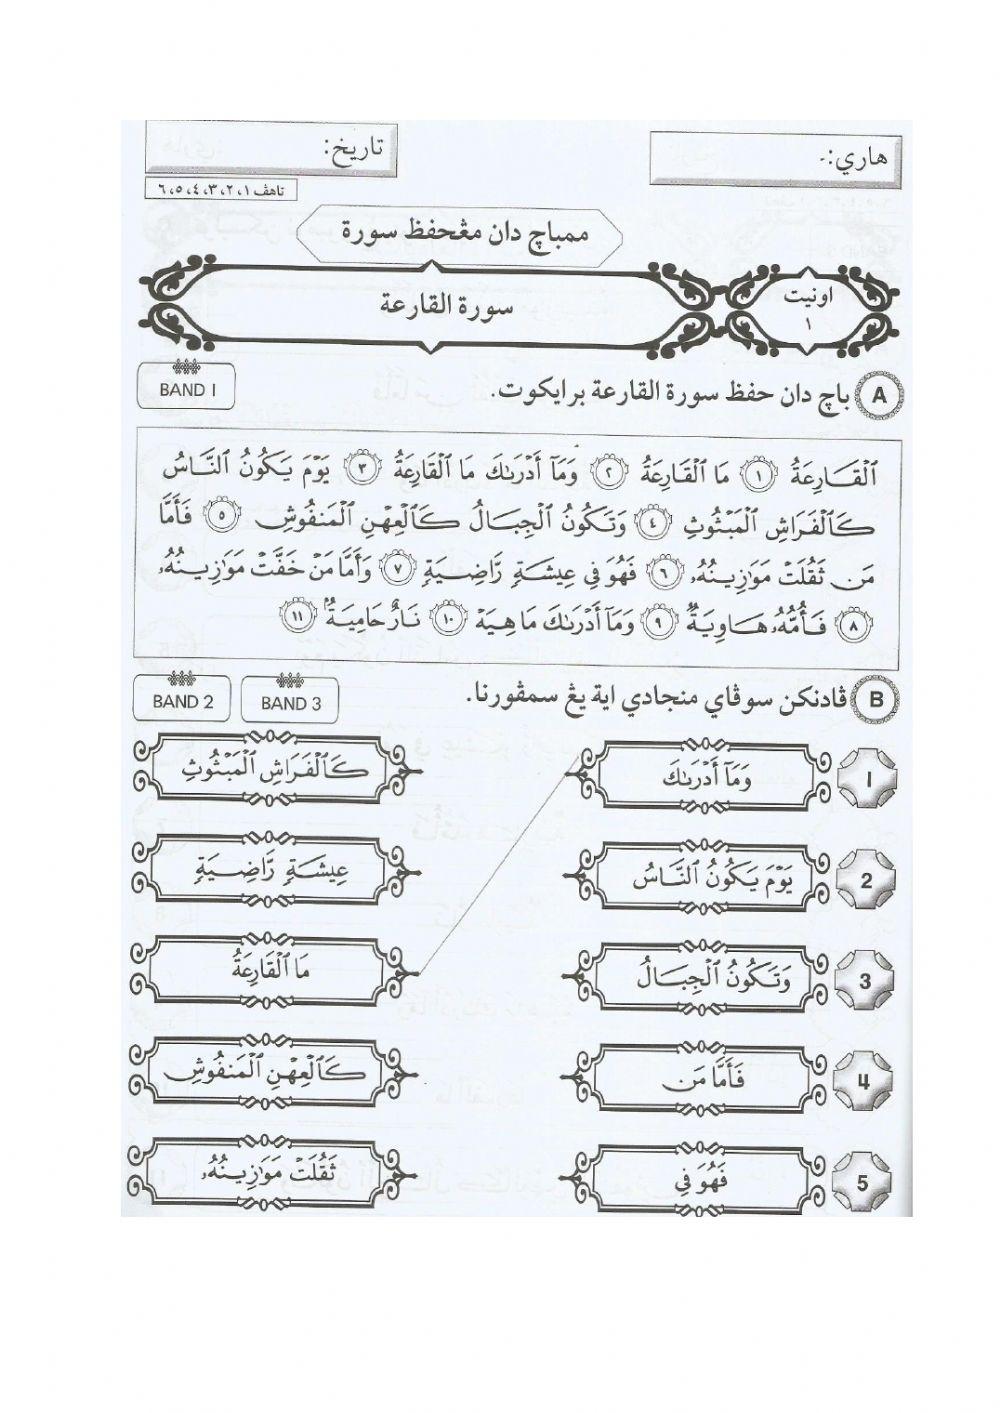 هاري:-
تاريخ:
تاهڤ ١، ٢، ٣، ٤، ٥، ٦
ممباچ دان مڠحفظ سورة
اونيت
١
سورة القارعة
A باچ دان حفظ سورة القارعة برايكوت.
BAND 1
ٱلْقَارِعَةُ ١ مَا ٱلْقَارِعَةُ ٢ وَمَآ أَدْرَىٰكَ مَا ٱلْقَارِعَةُ ٣ يَوْمَ يَكُونُ ٱلنَّاسُ
كَٱلْفَرَاشِ ٱلْمَبْثُوثِ ٤ وَتَكُونُ ٱلْجِبَالُ كَٱلْعِهْنِ ٱلْمَنفُوشِ ٥ فَأَمَّا
مَن ثَقُلَتْ مَوَٰزِينُهُۥ ٦ فَهُوَ فِى عِيشَةٍ رَّاضِيَةٍ ٧ وَأَمَّا مَنْ خَفَّتْ مَوَٰزِينُهُۥ
٨ فَأُمُّهُۥ هَاوِيَةٌ ٩ وَمَآ أَدْرَىٰكَ مَا هِيَهْ ١٠ نَارٌ حَامِيَةٌۢ ١١
B ڤادنكن سوڤاي منجادي اية يڠ سمڤورنا.
BAND 3
BAND 2
1 وَمَآ أَدْرَىٰكَ
كَٱلْفَرَاشِ ٱلْمَبْثُوثِ
2 يَوْمَ يَكُونُ ٱلنَّاسُ
عِيشَةٍ رَّاضِيَةٍ
3 وَتَكُونُ ٱلْجِبَالُ
مَا ٱلْقَارِعَةُ
4 فَأَمَّا مَن
كَٱلْعِهْنِ ٱلْمَنفُوشِ
5 فَهُوَ فِى
ثَقُلَتْ مَوَٰزِينُهُۥ